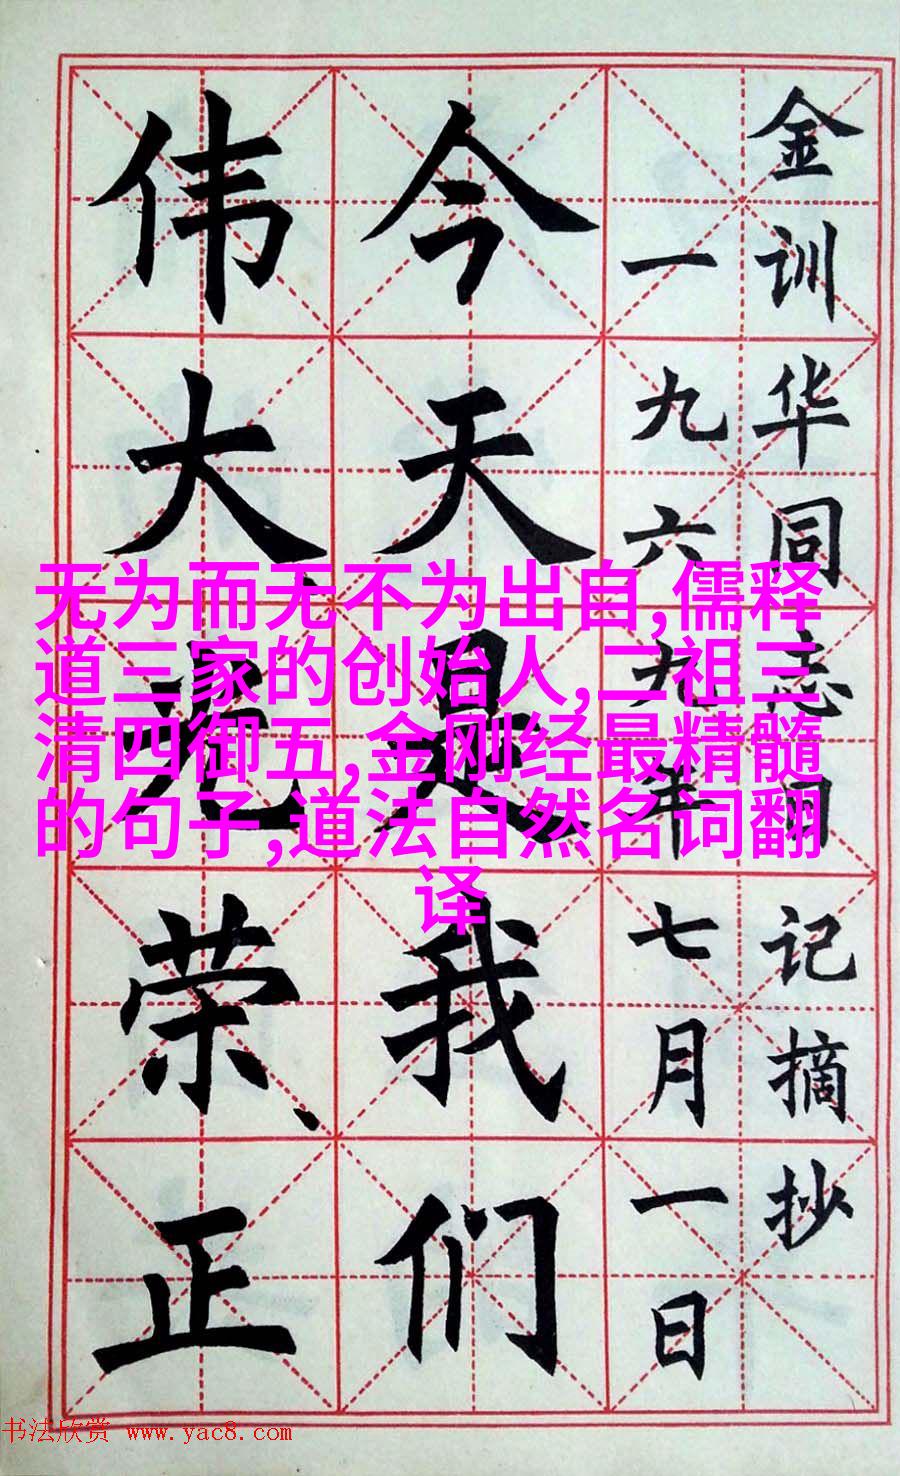 金训华同志日记摘抄
一九六九年七月一日
今天是我们
伟大、光荣、正
无为而无不为出自,儒释
道三家的创始人,二祖三
清四御五,金刚经最精髓
的句子,道法自然名词翻
译
书法欣赏 www.yac8.com